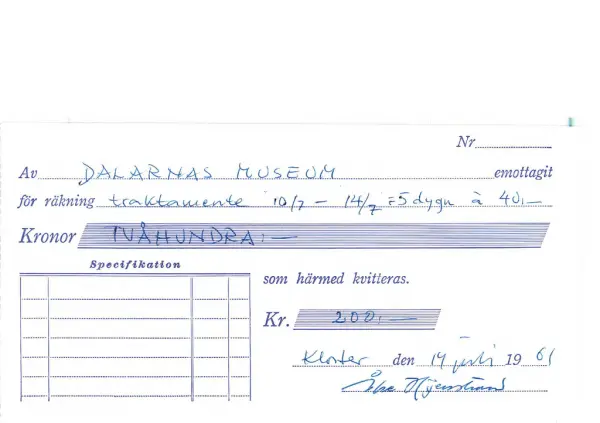 Nr
Av DALARNAS MUSEUM emottagit
för räkning traktamente 10/7 – 14/7 = 5 dygn à 40:—
Kronor TVÅHUNDRA:—
Specifikation
som härmed kvitteras.
Kr. 200:—
Kloster den 14 juli 1961